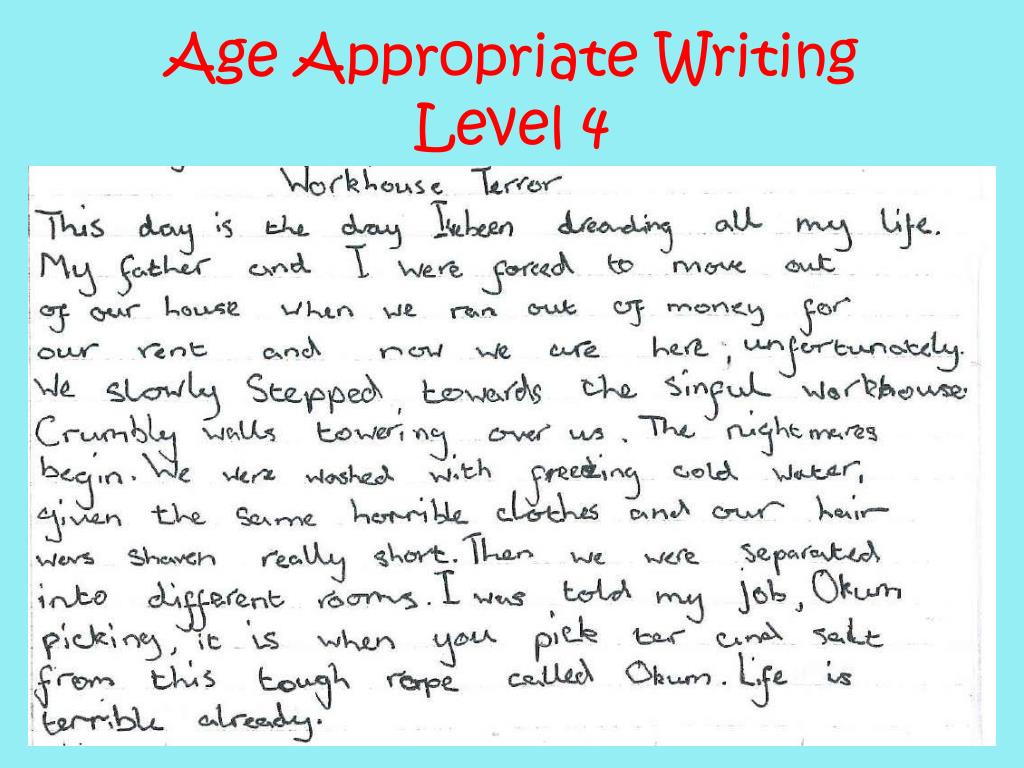 Age Appropriate Writing
Level 4
Workhouse Terror
This day is the day I'vebeen dreading all my life.
My father and I were forced to move out
of our house when we ran out of money for
our rent and now we are here, unfortunately.
We slowly Stepped, towards the sinful workhouse.
Crumbly walls towering over us. The nightmares
begin. We were washed with freezing cold water,
given the same horrible clothes and our hair
was shaven really short. Then we were separated
into different rooms. I was told my job, Okum
picking, it is when you pick tar and salt
from this tough rope called Okum. Life is
terrible already.